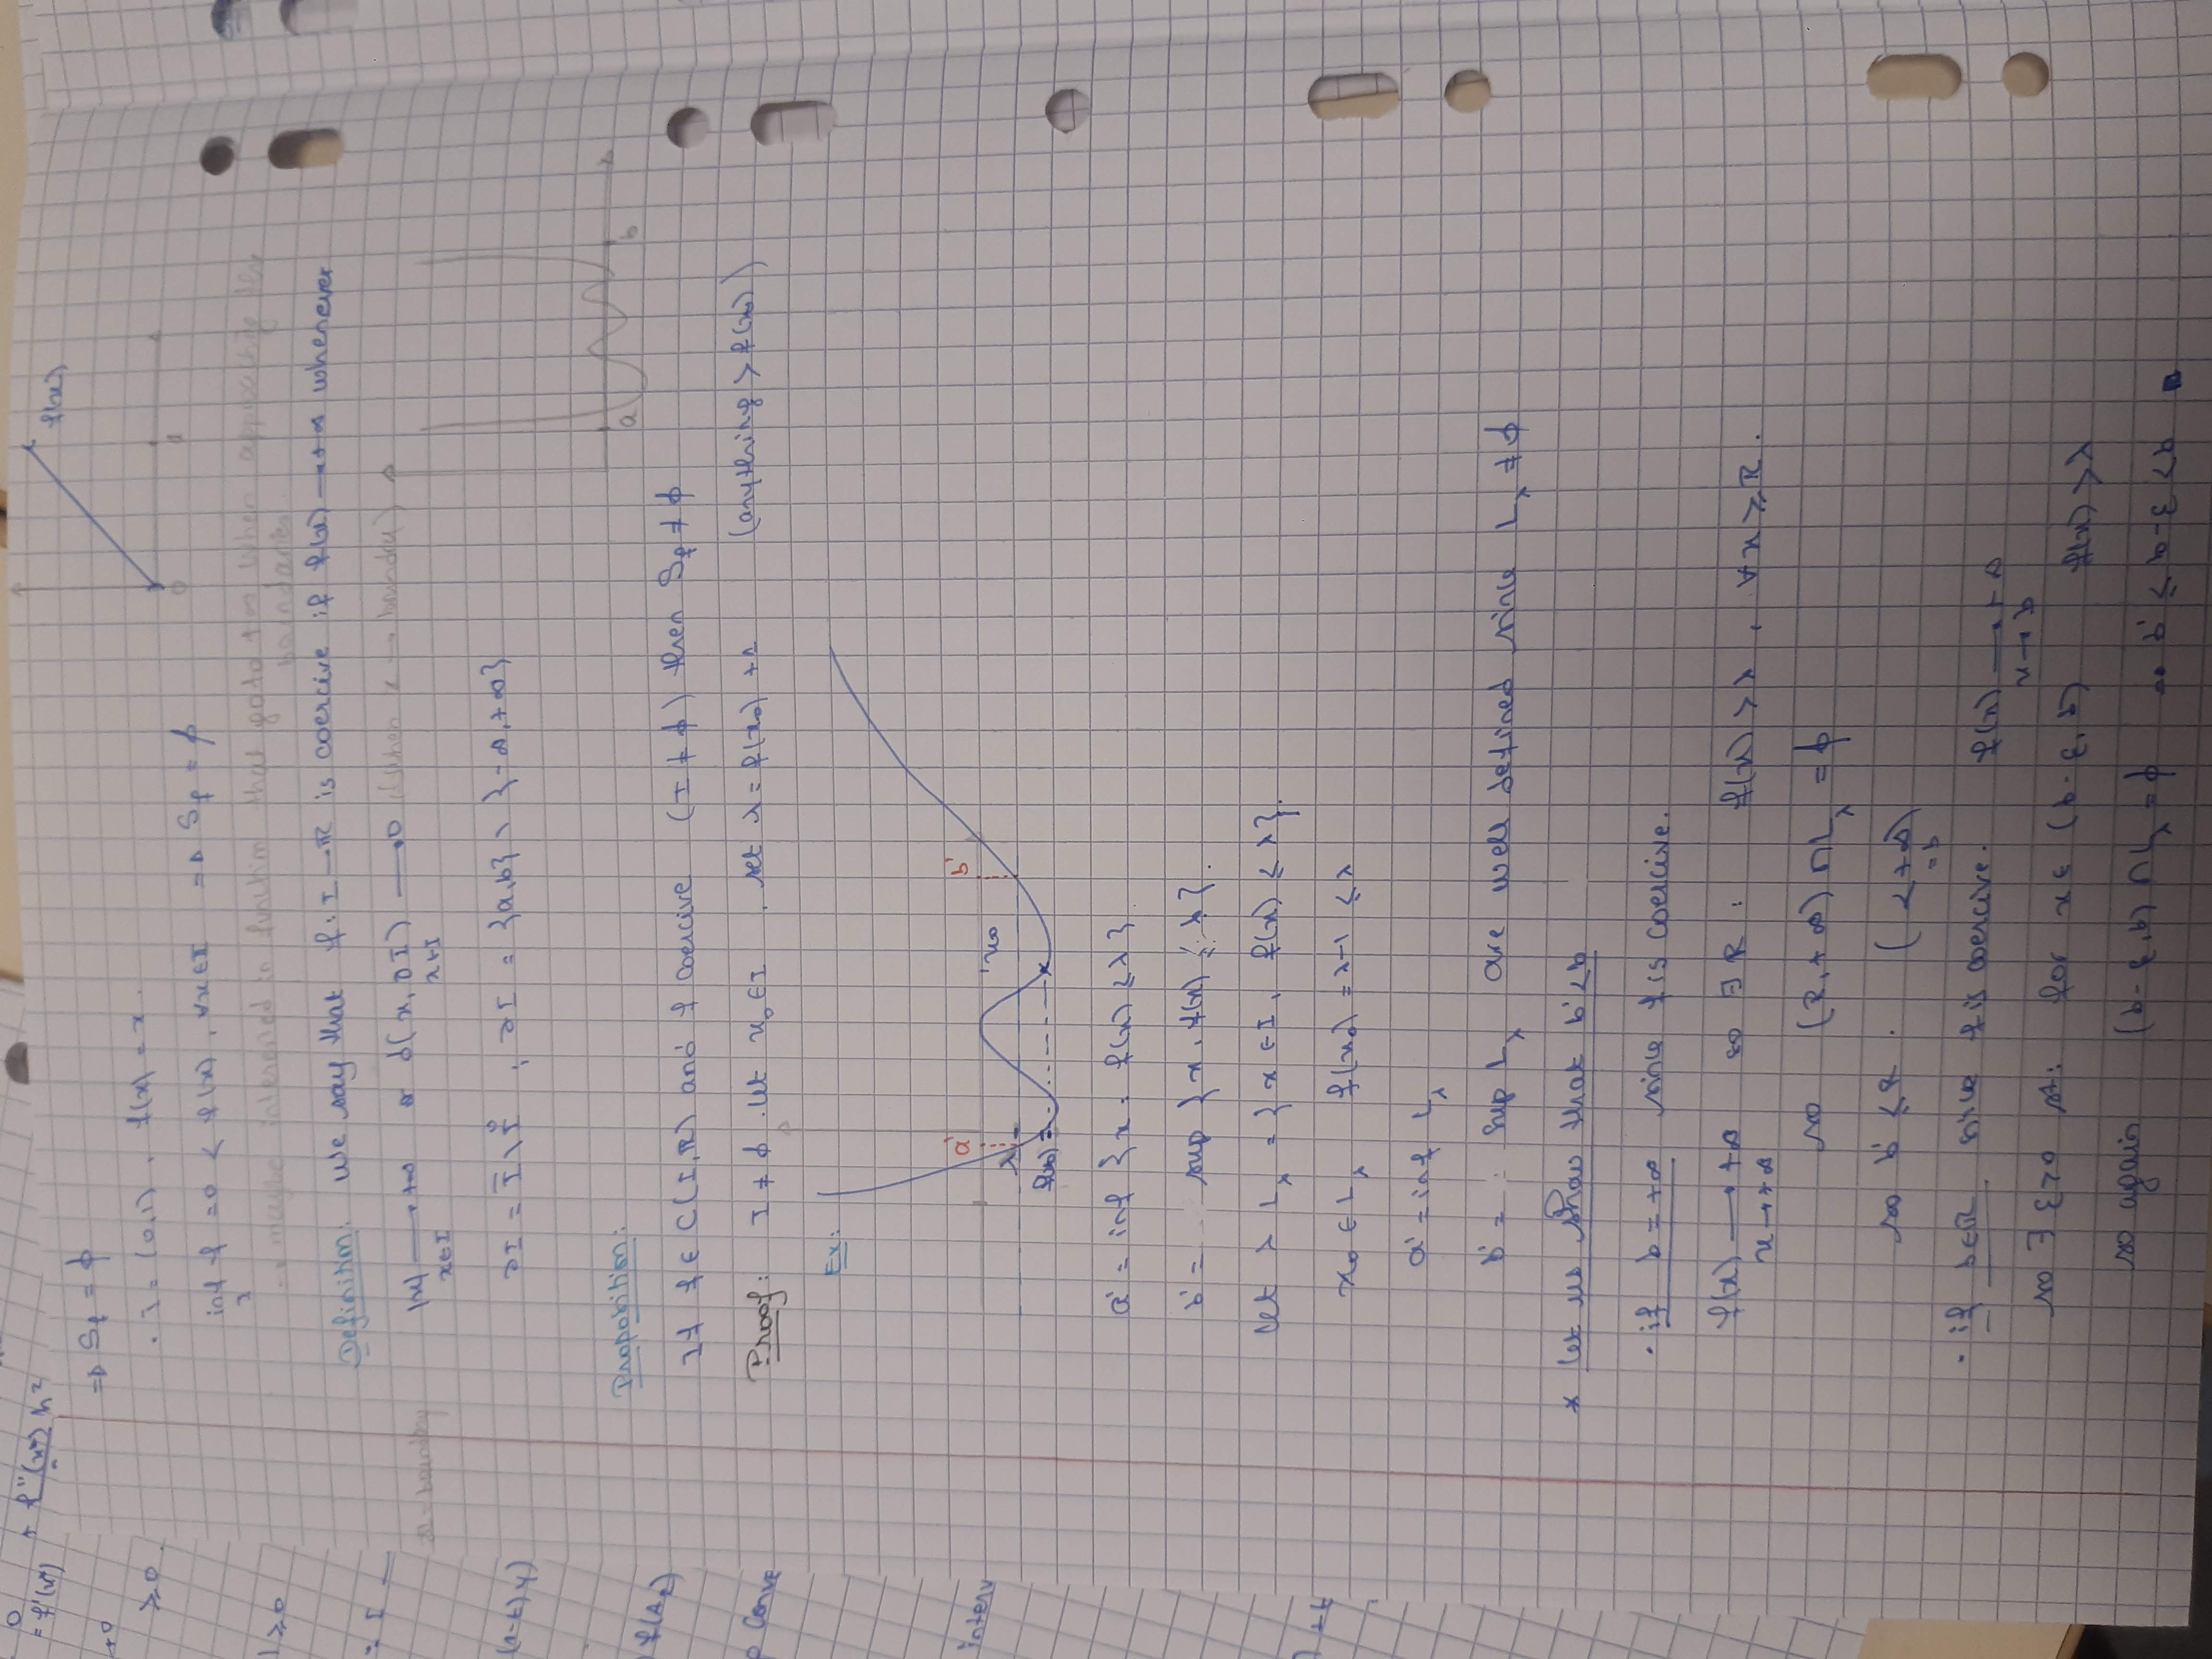 0
= f'(x*) + f''(x*) h²
2
+0
≥0.
⇒ Sf = ϕ
f(x)
. I = (0,1), f(x) = x.
0 1
inf f = 0 < f(x), ∀x∈I ⇒ Sf = ϕ
I
) ≥0
→ maybe interested in function that go to +∞ when approaching the
boundaries.
Definition: We say that f: I → ℝ is coercive if f(x) → +∞ whenever
= I
∂I = boundary
|x| → +∞ or d(x, ∂I) → 0 (when x → boundary)
x∈I x∈I
(1-t)y)
∂I = Ī \ I̊ , ∂I = {a,b} \ {-∞,+∞}
a b
Proposition:
If f ∈ C(I,ℝ) and f coercive (I ≠ ϕ) then Sf ≠ ϕ
Conve
Proof: I ≠ ϕ. let x₀ ∈ I, set λ = f(x₀) +1 (anything > f(x₀))
Ex:
interv
a' b'
λ x₀
f(x₀)
a' = inf {x, f(x) ≤ λ}
b' = sup {x, f(x) ≤ λ}.
let λ L_λ = {x ∈ I, f(x) ≤ λ}.
x₀ ∈ L_λ f(x₀) = λ-1 ≤ λ
a' = inf L_λ
b' = sup L_λ are well defined since L_λ ≠ ϕ
* let us show that b' < b
. if b = +∞ since f is coercive.
f(x) → +∞ so ∃ R : f(x) > λ, ∀x ≥ R.
x → +∞
so (R,+∞) ∩ L_λ = ϕ
so b' ≤ R. ( < +∞)
= b
. if b∈ℝ since f is coercive. f(x) → +∞
x → b
so ∃ ε>0 st: for x ∈ (b-ε, b) f(x) > λ
so again (b-ε, b) ∩ L_λ = ϕ so b' ≤ b-ε < b